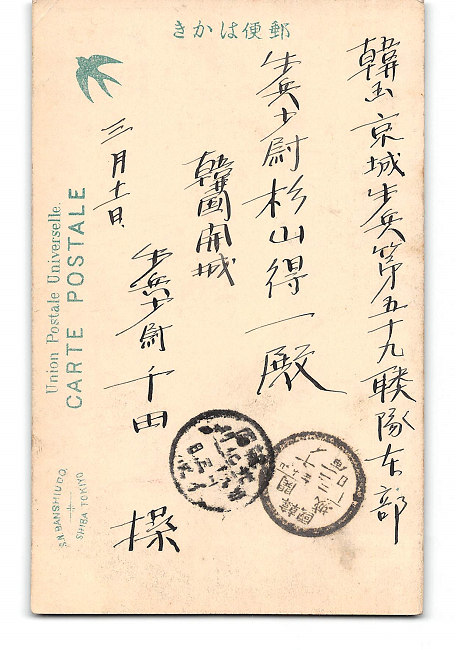 郵便はかき
韓国京城歩兵第五十九聯隊本部
歩兵少尉杉山得一殿
韓国開城
歩兵少尉 千田
三月十一日
Union Postale Universelle.
CARTE POSTALE
S.N.BANSHIU CO.
SHIBA TOKIYO
韓國
開城